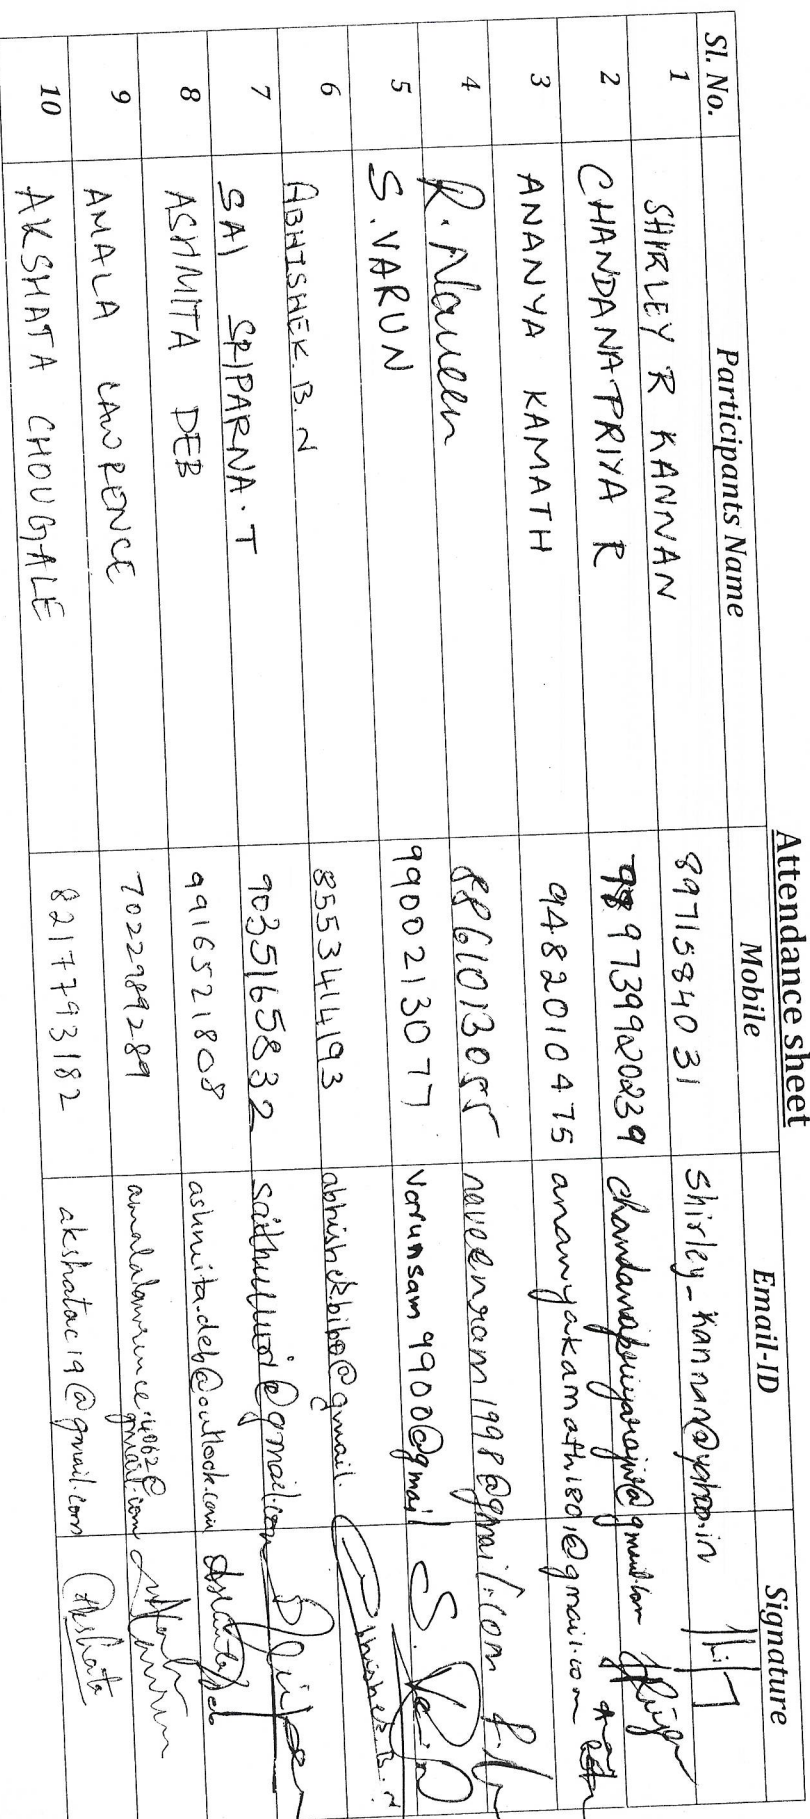 Attendance sheet
Sl. No. Participants Name Mobile Email-ID Signature
1 SHIRLEY R KANNAN 8971584031 Shirley_Kannan@yahoo.in
2 CHANDANA PRIYA R 9739920239 @gmail.com
3 ANANYA KAMATH 9482010475 ananyakamath1801@gmail.com
4 R. Naveen 8861013055 naveenram1998@gmail.com
5 S. VARUN 9900213077 Varunsam9900@gmail S.
6 ABHISHEK. B. N 8553414193 abhishekbibo@gmail. Abhishek. B. N
7 SAI SRIPARNA. T 9035165832 @gmail.com
8 ASHMITA DEB 9916521808 ashmita.deb@outlook.com Ashmita Deb
9 AMALA LAWRENCE 7022989289 amalalawrence.4062@
gmail.com
10 AKSHATA CHOUGALE 8217793182 akshatac19@gmail.com Akshata